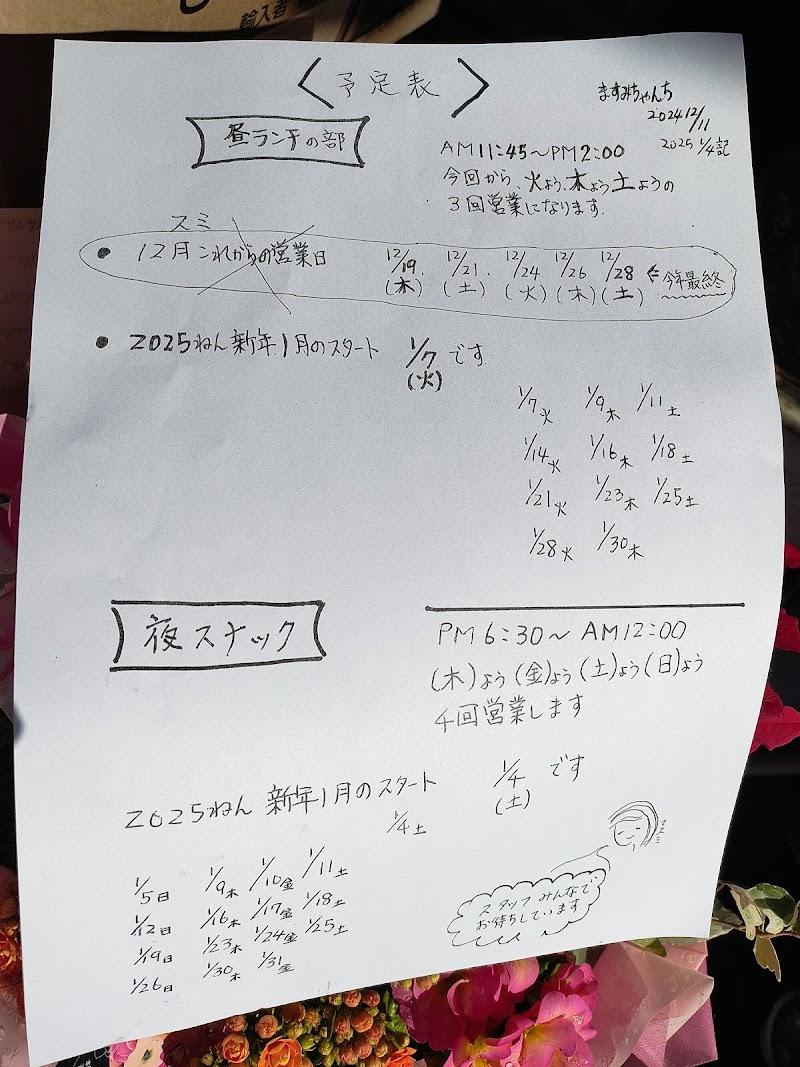 輸入者
〈予定表〉
ますみちゃんち
2024 12/11
2025 1/4記
昼ランチの部
AM11:45~PM2:00
今回から、火よう、木よう土ようの
3回営業になります。
スミ
● 12月これからの営業日 12/19.(木) 12/21.(土) 12/24(火) 12/26(木) 12/28(土) ⇐今年最終
● 2025ねん新年、1月のスタート 1/7(火)です
1/7火 1/9木 1/11土
1/14火 1/16木 1/18土
1/21火 1/23木 1/25土
1/28火 1/30木
夜スナック
PM6:30~AM12:00
(木)よう(金)よう(土)よう(日)よう
4回営業します
2025ねん 新年1月のスタート 1/4(土)です
1/4土
1/5日 1/9木 1/10金 1/11土
1/12日 1/16木 1/17金 1/18土
1/19日 1/23木 1/24金 1/25土
1/26日 1/30木 1/31金
マスミ
スタッフみんなで
お待ちしています